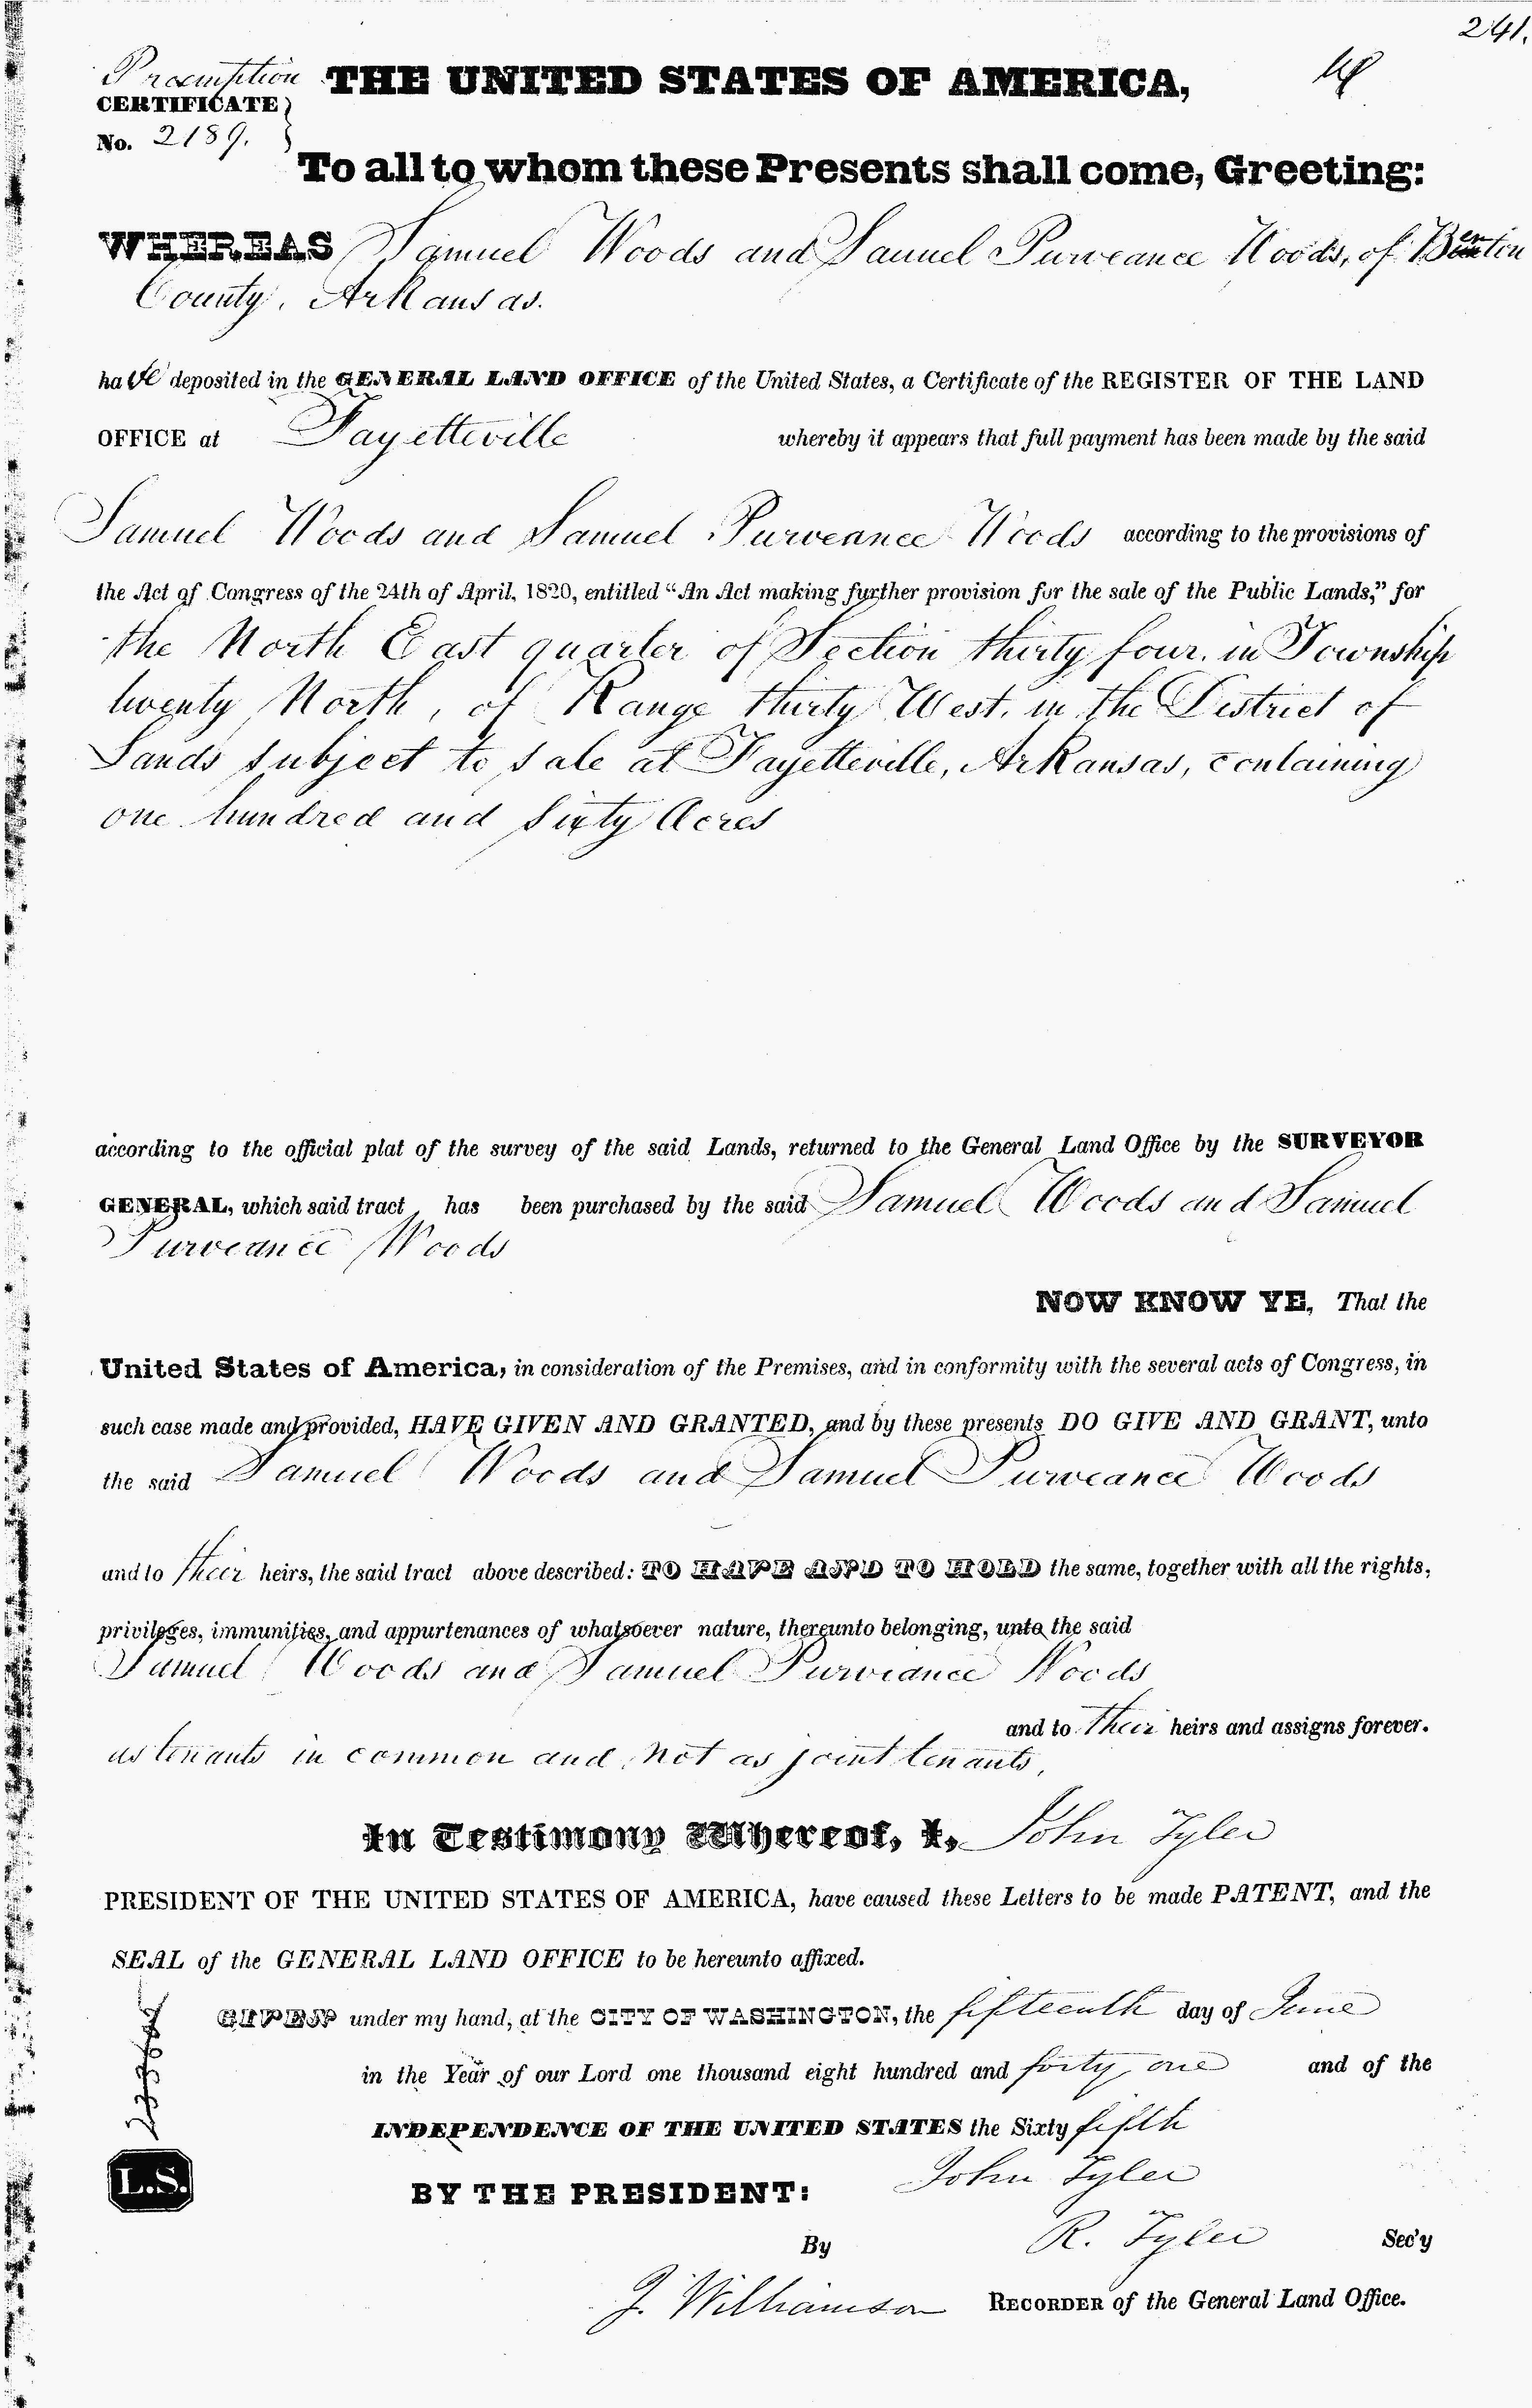 241.
Preemption
CERTIFICATE
No. 2189.
THE UNITED STATES OF AMERICA,
To all to whom these Presents shall come, Greeting:
WHEREAS Samuel Woods and Samuel Purveance Woods, of Benton
County, Arkansas.
have deposited in the GENERAL LAND OFFICE of the United States, a Certificate of the REGISTER OF THE LAND
OFFICE at Fayetteville whereby it appears that full payment has been made by the said
Samuel Woods and Samuel Purveance Woods according to the provisions of
the Act of Congress of the 24th of April, 1820, entitled “An Act making further provision for the sale of the Public Lands,” for
the North East quarter of Section thirty four, in Township
twenty North, of Range thirty West, in the District of
Lands subject to sale at Fayetteville, Arkansas, containing
one hundred and sixty Acres
according to the official plat of the survey of the said Lands, returned to the General Land Office by the SURVEYOR
GENERAL, which said tract has been purchased by the said Samuel Woods and Samuel
Purveance Woods
NOW KNOW YE, That the
United States of America, in consideration of the Premises, and in conformity with the several acts of Congress, in
such case made and provided, HAVE GIVEN AND GRANTED, and by these presents DO GIVE AND GRANT, unto
the said Samuel Woods and Samuel Purveance Woods
and to their heirs, the said tract above described: TO HAVE AND TO HOLD the same, together with all the rights,
privileges, immunities, and appurtenances of whatsoever nature, thereunto belonging, unto the said
Samuel Woods and Samuel Purveance Woods
and to their heirs and assigns forever.
as tenants in common and not as joint tenants,
In Testimony Whereof, I, John Tyler
PRESIDENT OF THE UNITED STATES OF AMERICA, have caused these Letters to be made PATENT, and the
SEAL of the GENERAL LAND OFFICE to be hereunto affixed.
GIVEN under my hand, at the CITY OF WASHINGTON, the fifteenth day of June
in the Year of our Lord one thousand eight hundred and forty one and of the
INDEPENDENCE OF THE UNITED STATES the Sixty fifth
L.S.
BY THE PRESIDENT: John Tyler
By R. Tyler Sec'y
J. Williamson RECORDER of the General Land Office.